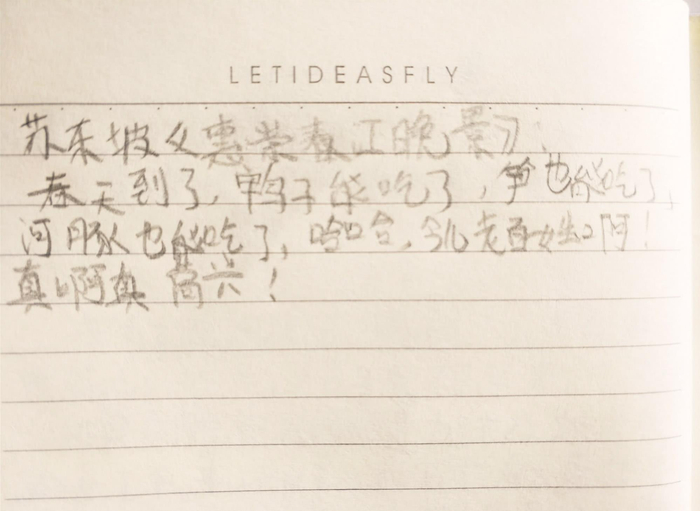 LETIDEASFLY
苏东坡《惠崇春江晚景》:
春天到了,鸭子能吃了,笋也能吃了,
河豚也能吃了,哈哈,老百姓啊!
真啊真高兴!